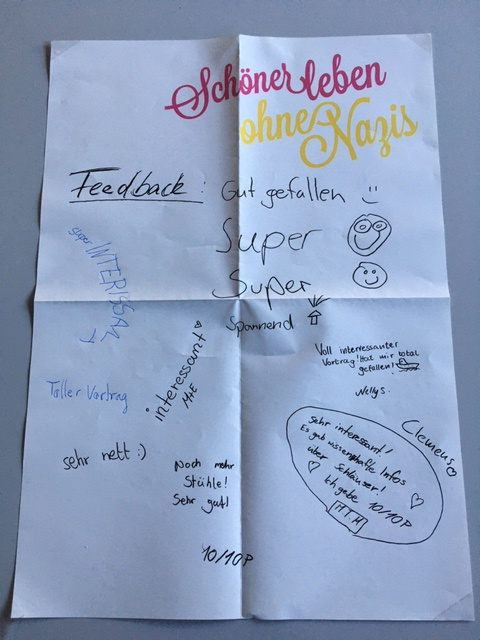 Schöner leben
ohne Nazis
Feedback: Gut gefallen :)
Super
Super
Spannend
super INTERISSAN
T
interessant
M+E
Voll interressanter
Vortrag! Hat mir total
gefallen!
Nelly S.
Toller Vortrag
Clemens
sehr nett :)
Noch mehr
Stühle!
Sehr gut!
Sehr interessant!
Es gab wissenshafte Infos
über
Ich gebe 10/10P
10/10P